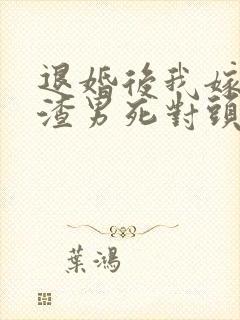 退婚後我嫁
渣男死對頭
葉鴻